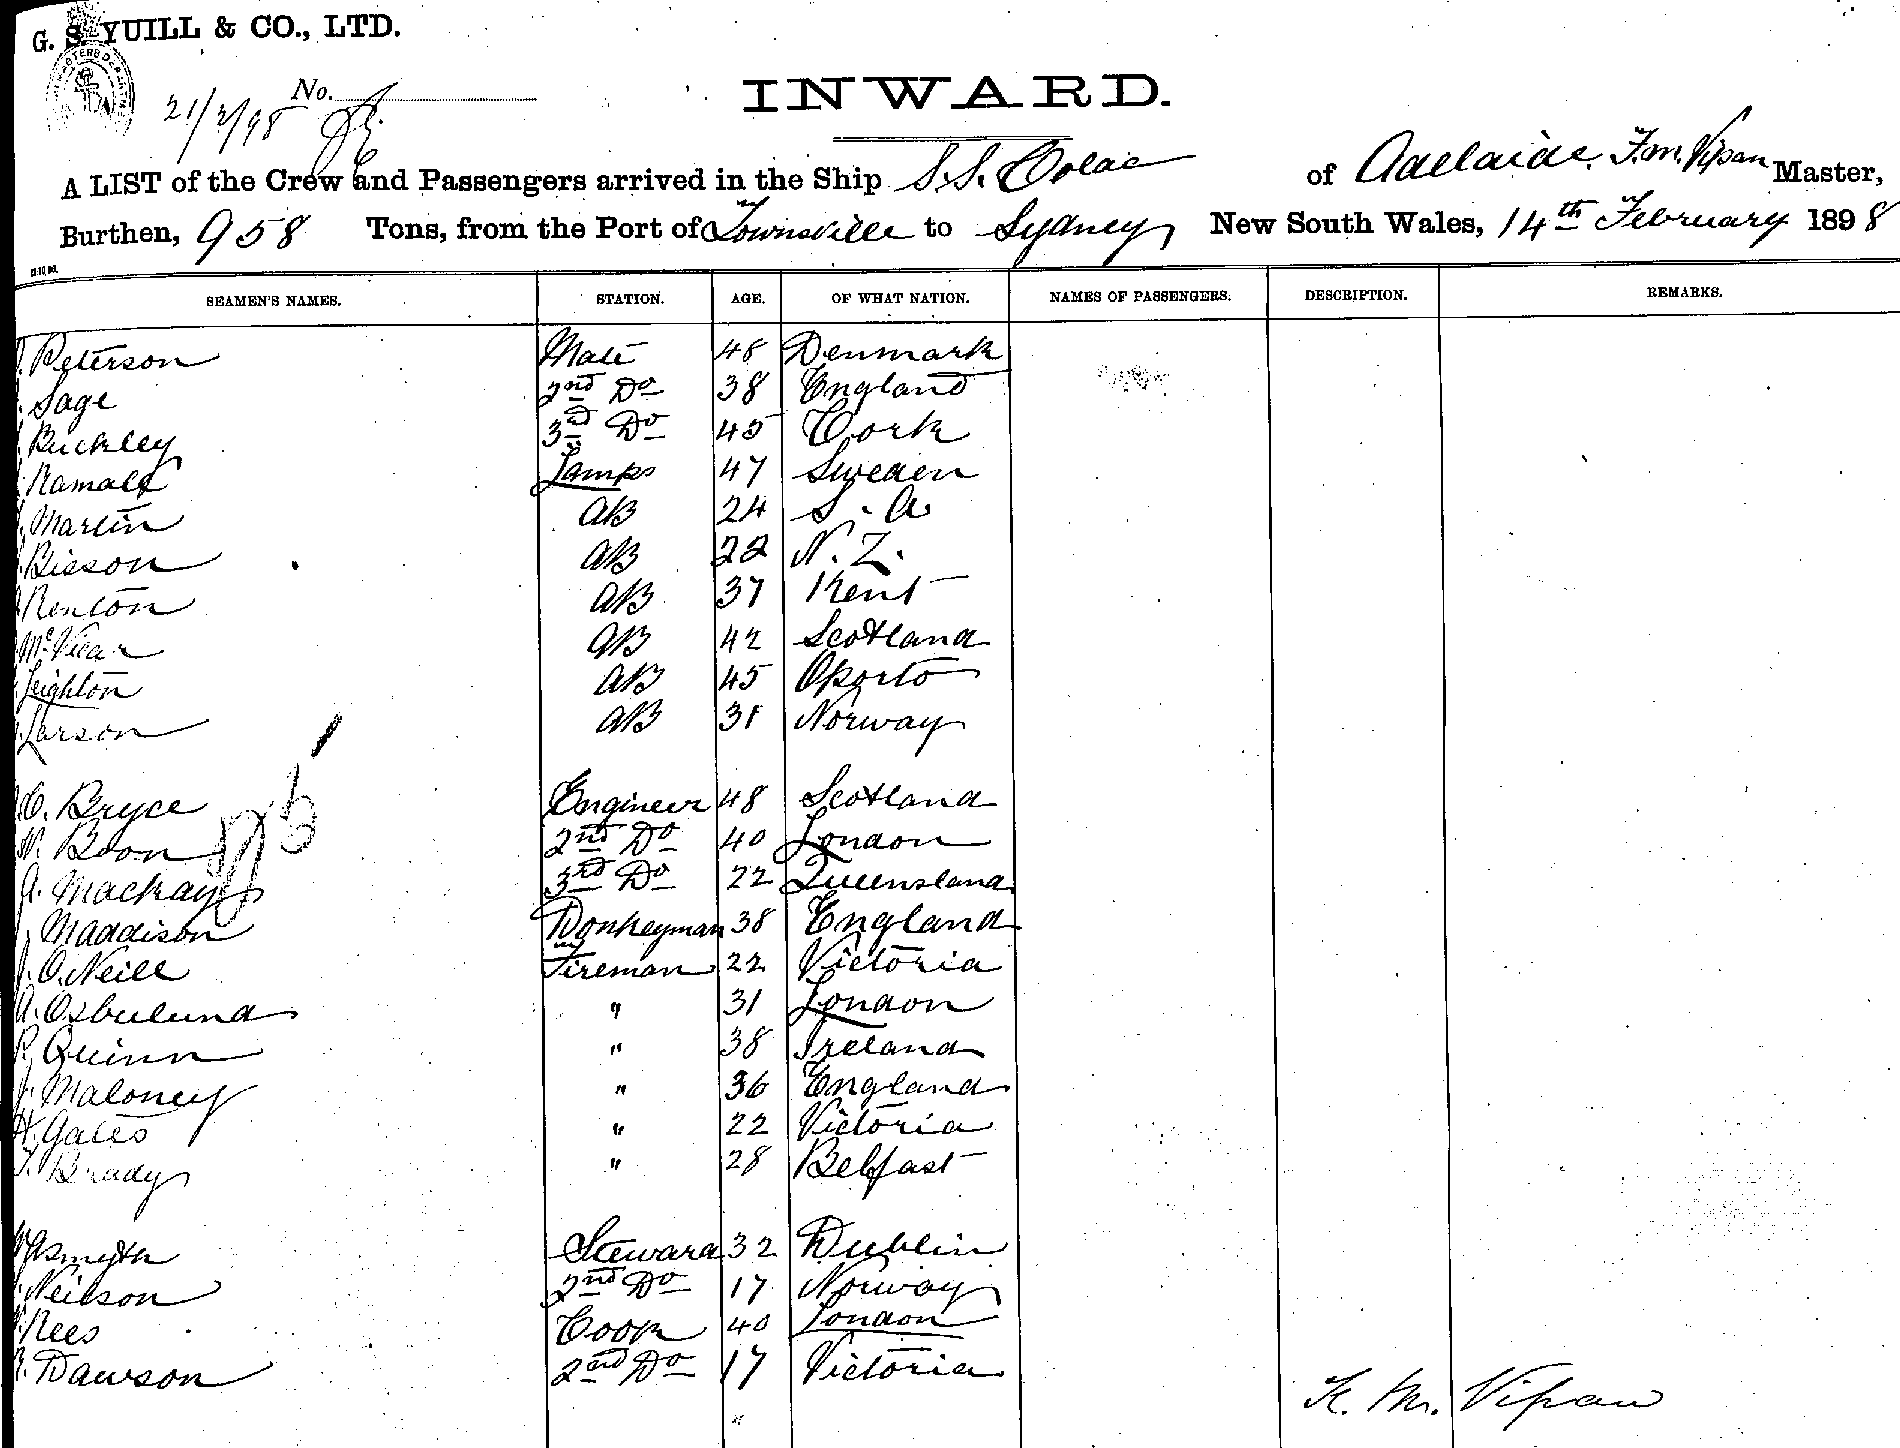 G. S. YUILL & CO., LTD.
21/2/98 No.
INWARD.
A LIST of the Crew and Passengers arrived in the Ship S.S. Colac of Adelaide. F.M. Vipan Master,
Burthen, 958 Tons, from the Port of Townsville to Sydney New South Wales, 14th February 1898
SEAMEN'S NAMES. STATION. AGE. OF WHAT NATION. NAMES OF PASSENGERS. DESCRIPTION. REMARKS.
Peterson Mate 48 Denmark
Sage 2nd Do 38 England
Buckley 3rd Do 45 Cork
Lamps 47 Sweden
Martin AB 24 S. A
Bisson AB 22 N. Z.
Renton AB 37 Kent
McVicar AB 42 Scotland
Leighton AB 45 Oporto
Larson AB 31 Norway
C. Bryce Engineer 48 Scotland
Boon 2nd Do 40 London
A. Mackay 3rd Do 22 Queensland
Maddison Donkeyman 38 England
J. O.Neill Fireman 22 Victoria
A. " 31 London
P. Quinn " 38 Ireland
J. Maloney " 36 England
H. Gates " 22 Victoria
T. Brady " 28 Belfast
Smyth Steward 32 Dublin
Neilson 2nd Do 17 Norway
Rees Cook 40 London
Dawson 2nd Do 17 Victoria
"
F. M. Vipan